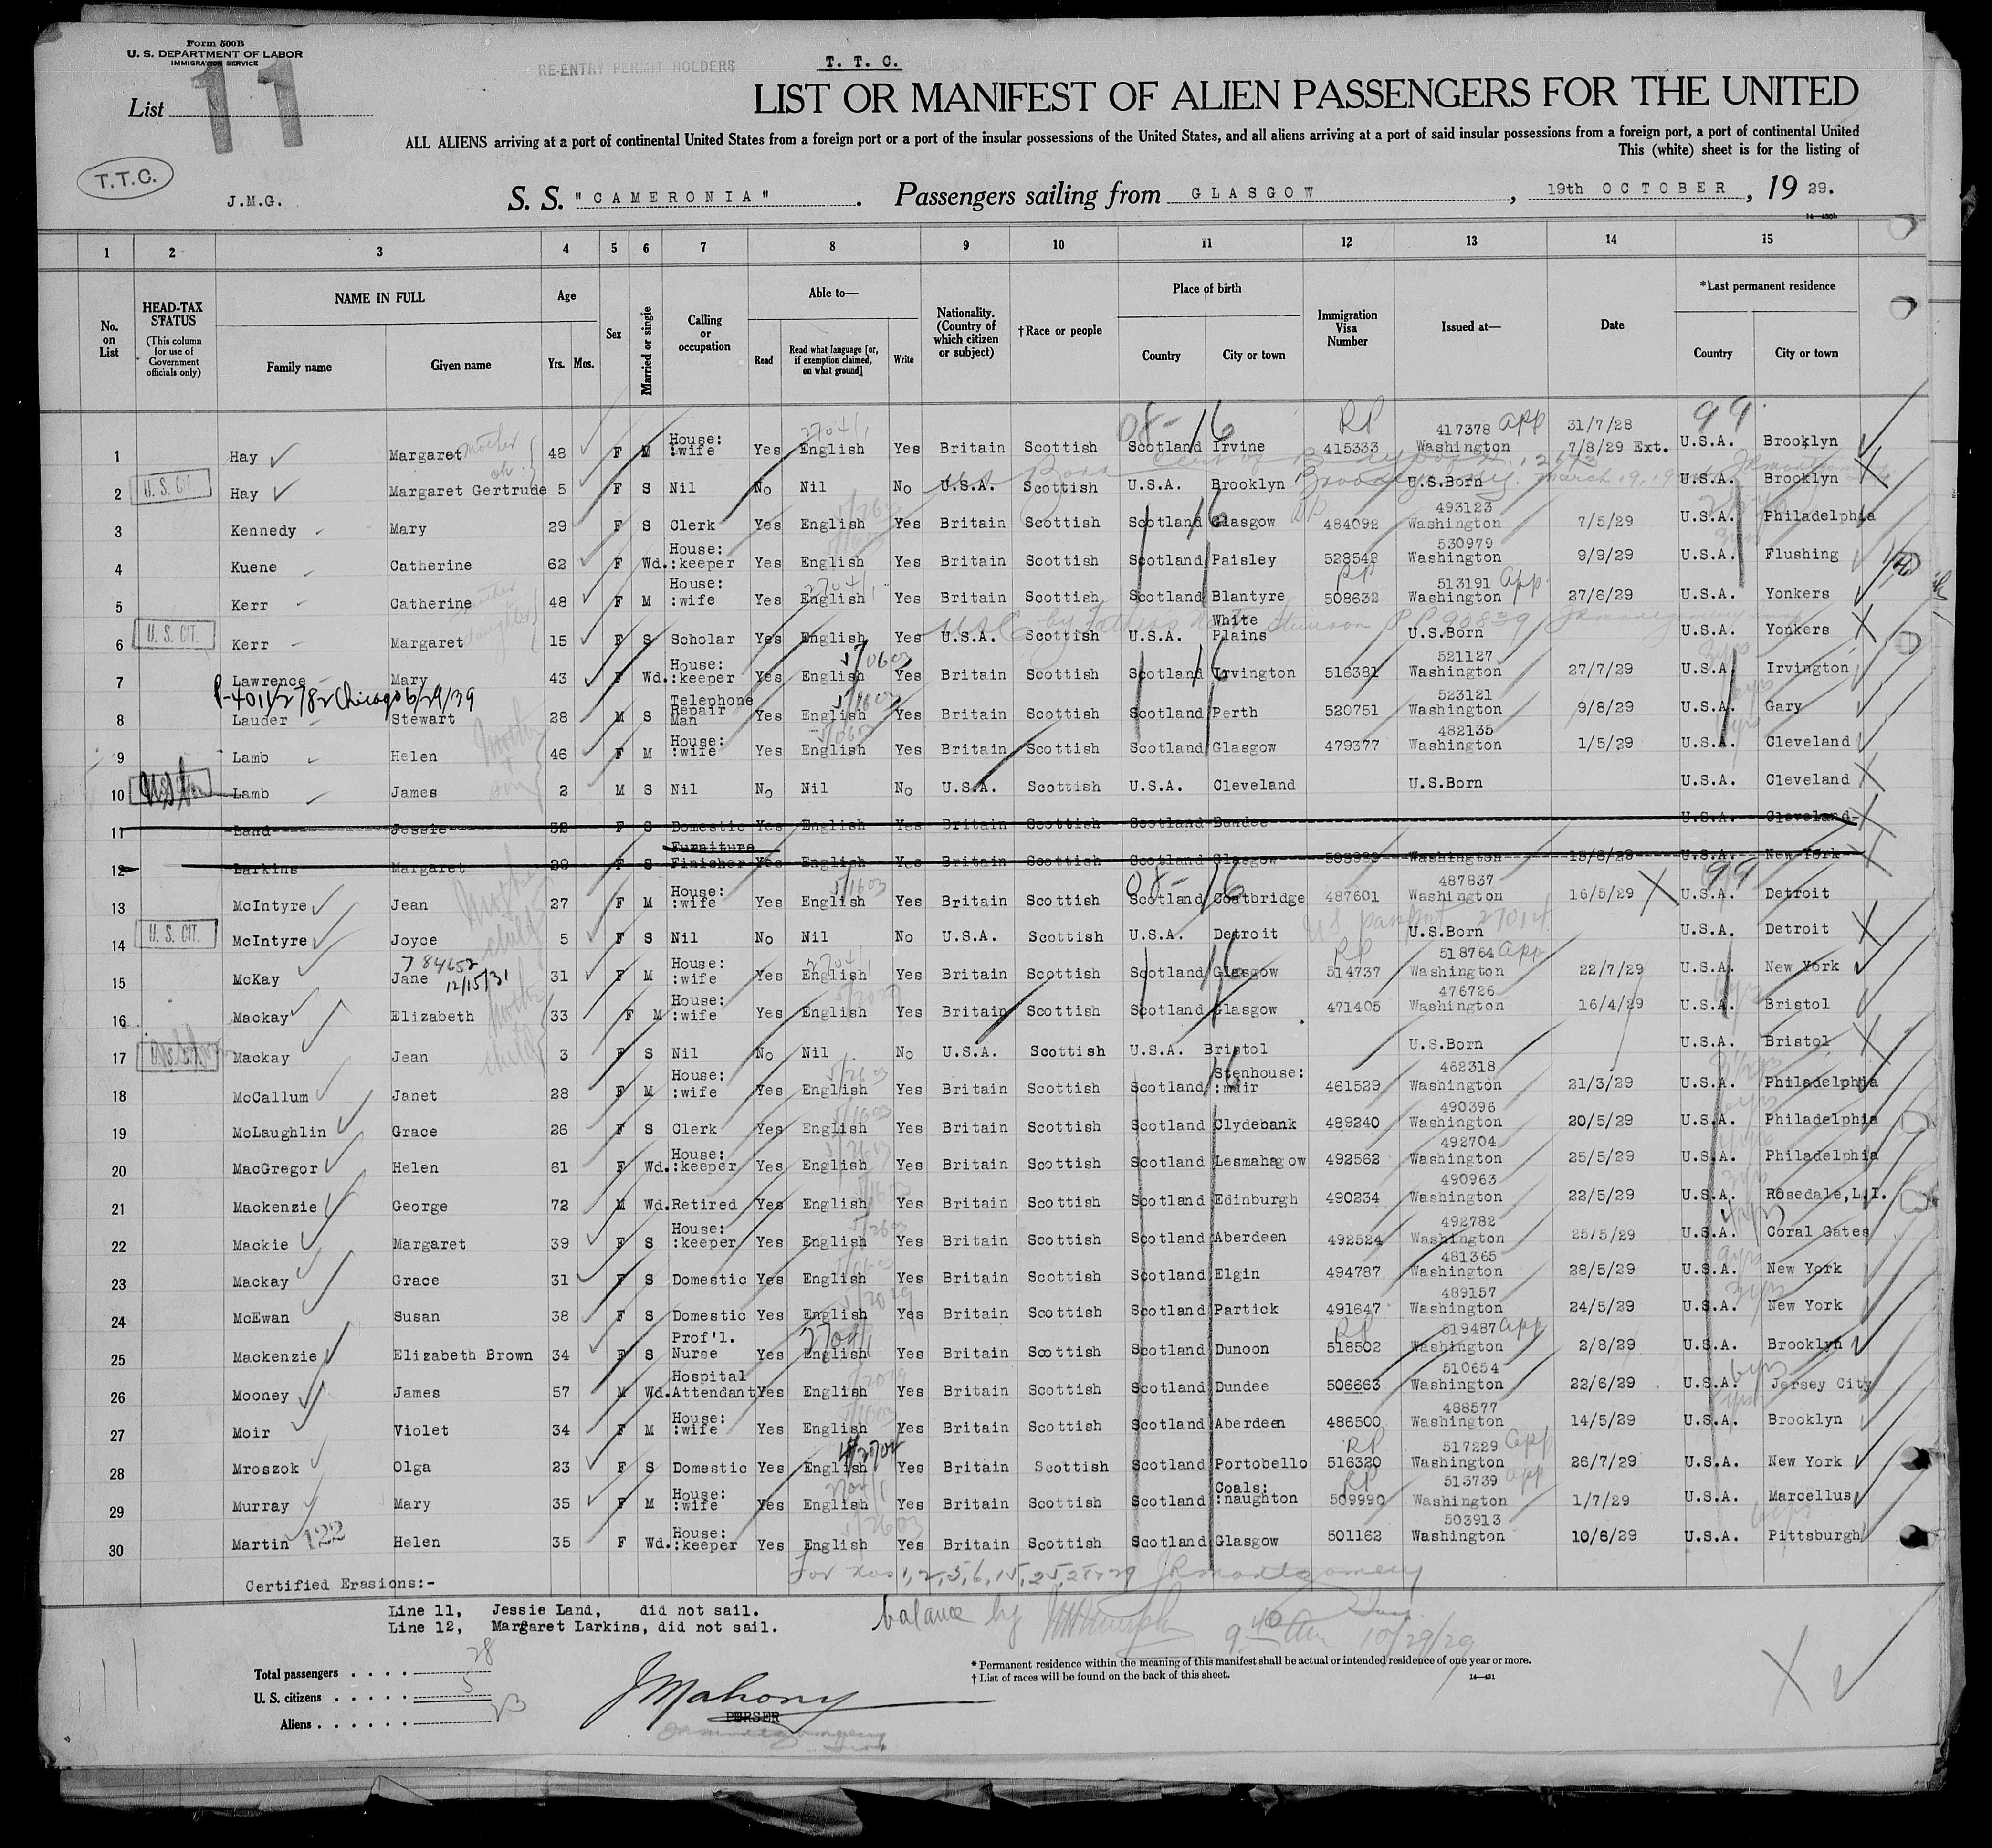 Form 500B
U. S. DEPARTMENT OF LABOR
IMMIGRATION SERVICE
RE-ENTRY PERMIT HOLDERS
T. T. C.
List 11
LIST OR MANIFEST OF ALIEN PASSENGERS FOR THE UNITED
ALL ALIENS arriving at a port of continental United States from a foreign port or a port of the insular possessions of the United States, and all aliens arriving at a port of said insular possessions from a foreign port, a port of continental United
This (white) sheet is for the listing of
T.T.C.
J.M.G.
S. S. "CAMERONIA". Passengers sailing from GLASGOW, 19th OCTOBER, 1929.
14—430b
1 2 3 4 5 6 7 8 9 10 11 12 13 14 15
No. on List
HEAD-TAX STATUS (This column for use of Government officials only)
NAME IN FULL Family name Given name
Age Yrs. Mos.
Sex
Married or single
Calling or occupation
Able to— Read Read what language [or, if exemption claimed, on what ground] Write
Nationality. (Country of which citizen or subject)
†Race or people
Place of birth Country City or town
Immigration Visa Number
Issued at—
Date
*Last permanent residence Country City or town
08- 16 RP app 99
1 Hay Margaret mother 48 F M House: :wife Yes English Yes Britain Scottish Scotland Irvine 415333 417378 Washington 31/7/28 7/8/29 Ext. U.S.A. Brooklyn
2 U. S. CIT. Hay Margaret Gertrude 5 F S Nil No Nil No U.S.A. Scottish U.S.A. Brooklyn U.S.Born U.S.A. Brooklyn
3 Kennedy Mary 29 F S Clerk Yes English Yes Britain Scottish Scotland Glasgow 484092 493123 Washington 7/5/29 U.S.A. Philadelphia
4 Kuene Catherine 62 F Wd. House: :keeper Yes English Yes Britain Scottish Scotland Paisley 528548 530979 Washington 9/9/29 U.S.A. Flushing
5 Kerr Catherine 48 F M House: :wife Yes English Yes Britain Scottish Scotland Blantyre RP 508632 513191 app Washington 27/6/29 U.S.A. Yonkers
6 U. S. CIT. Kerr Margaret daughter 15 F S Scholar Yes English Yes U.S.A. Scottish U.S.A. White Plains U.S.Born U.S.A. Yonkers
7 Lawrence Mary 43 F Wd. House: :keeper Yes English Yes Britain Scottish Scotland Irvington 516381 521127 Washington 27/7/29 U.S.A. Irvington
P-4011278 2 Chicago 6/29/39
8 Lauder Stewart 28 M S Telephone Repair Man Yes English Yes Britain Scottish Scotland Perth 520751 523121 Washington 9/8/29 U.S.A. Gary
9 Lamb Helen 46 F M House: :wife Yes English Yes Britain Scottish Scotland Glasgow 479377 482135 Washington 1/5/29 U.S.A. Cleveland
10 Lamb James 2 M S Nil No Nil No U.S.A. Scottish U.S.A. Cleveland U.S.Born U.S.A. Cleveland
11 Land Jessie 32 F S Domestic Yes English Yes Britain Scottish Scotland Dundee U.S.A. Cleveland
12 Larkins Margaret 29 F S Furniture Finisher Yes English Yes Britain Scottish Scotland Glasgow Washington U.S.A. New York
13 McIntyre Jean 27 F M House: :wife Yes English Yes Britain Scottish Scotland Coatbridge 487601 487837 Washington 16/5/29 U.S.A. Detroit
14 U. S. CIT. McIntyre Joyce 5 F S Nil No Nil No U.S.A. Scottish U.S.A. Detroit U.S.Born U.S.A. Detroit
784652 12/15/31
15 McKay Jane 31 F M House: :wife Yes English Yes Britain Scottish Scotland Glasgow RP 514737 518764 app Washington 22/7/29 U.S.A. New York
16 Mackay Elizabeth 33 F M House: :wife Yes English Yes Britain Scottish Scotland Glasgow 471405 476726 Washington 16/4/29 U.S.A. Bristol
17 Mackay Jean 3 F S Nil No Nil No U.S.A. Scottish U.S.A. Bristol U.S.Born U.S.A. Bristol
18 McCallum Janet 28 F M House: :wife Yes English Yes Britain Scottish Scotland Stenhouse: :muir 461529 462318 Washington 21/3/29 U.S.A. Philadelphia
19 McLaughlin Grace 26 F S Clerk Yes English Yes Britain Scottish Scotland Clydebank 489240 490396 Washington 20/5/29 U.S.A. Philadelphia
20 MacGregor Helen 61 F Wd. House: :keeper Yes English Yes Britain Scottish Scotland Lesmahagow 492562 492704 Washington 25/5/29 U.S.A. Philadelphia
21 Mackenzie George 72 M Wd. Retired Yes English Yes Britain Scottish Scotland Edinburgh 490234 490963 Washington 22/5/29 U.S.A. Rosedale, L.I.
22 Mackie Margaret 39 F S House: :keeper Yes English Yes Britain Scottish Scotland Aberdeen 492524 492782 Washington 25/5/29 U.S.A. Coral Gates
23 Mackay Grace 31 F S Domestic Yes English Yes Britain Scottish Scotland Elgin 494787 481365 Washington 28/5/29 U.S.A. New York
24 McEwan Susan 38 F S Domestic Yes English Yes Britain Scottish Scotland Partick 491647 489157 Washington 24/5/29 U.S.A. New York
25 Mackenzie Elizabeth Brown 34 F S Prof'l. Nurse Yes English Yes Britain Scottish Scotland Dunoon RP 518502 519487 app Washington 2/8/29 U.S.A. Brooklyn
26 Mooney James 57 M Wd. Hospital Attendant Yes English Yes Britain Scottish Scotland Dundee 506663 510654 Washington 22/6/29 U.S.A. Jersey City
27 Moir Violet 34 F M House: :wife Yes English Yes Britain Scottish Scotland Aberdeen 486500 488577 Washington 14/5/29 U.S.A. Brooklyn
28 Mroszok Olga 23 F S Domestic Yes English Yes Britain Scottish Scotland Portobello RP 516320 517229 app Washington 26/7/29 U.S.A. New York
29 Murray Mary 35 F M House: :wife Yes English Yes Britain Scottish Scotland Coals: :naughton RP 509990 513739 app Washington 1/7/29 U.S.A. Marcellus
30 Martin 122 Helen 35 F Wd. House: :keeper Yes English Yes Britain Scottish Scotland Glasgow 501162 503913 Washington 10/6/29 U.S.A. Pittsburgh
For nos 1, 2, 5, 6, 15, 25, 28, 29 JRMontgomery
Certified Erasions:-
Line 11, Jessie Land, did not sail.
Line 12, Margaret Larkins, did not sail.
balance by 9 40 am 10/29/29
Total passengers . . . . 28
U. S. citizens . . . . . 5
Aliens . . . . . . 23
JMahony
PURSER
* Permanent residence within the meaning of this manifest shall be actual or intended residence of one year or more.
† List of races will be found on the back of this sheet.
14—431